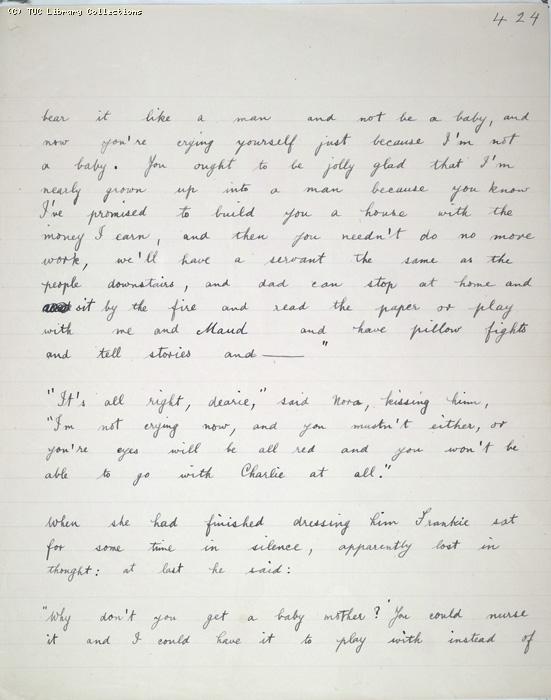 (C) TUC Library Collections
424
bear it like a man and not be a baby, and
now you're crying yourself just because I'm not
a baby. You ought to be jolly glad that I'm
nearly grown up into a man because you know
I've promised to build you a house with the
money I earn, and then you needn't do no more
work, we'll have a servant the same as the
people downstairs, and dad can stop at home and
sit by the fire and read the paper or play
with me and Maud and have pillow fights
and tell stories and —— "
"It's all right, dearie," said Nora, kissing him,
"I'm not crying now, and you mustn't either, or
you're eyes will be all red and you won't be
able to go with Charlie at all."
When she had finished dressing him Frankie sat
for some time in silence, apparently lost in
thought: at last he said:
"Why don't you get a baby mother? You could nurse
it and I could have it to play with instead of